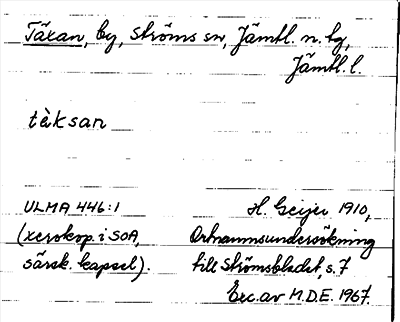 Täxan, by, Ströms sn, Jämtl. n. bg,
Jämtl. l.
tèksan
ULMA 446:1 H. Geijer 1910,
(xerokop. i SOA, Ortnamnsundersökning
särsk. kapsel). till Strömsbladet, s. 7
Exc. av M.D.E. 1967.